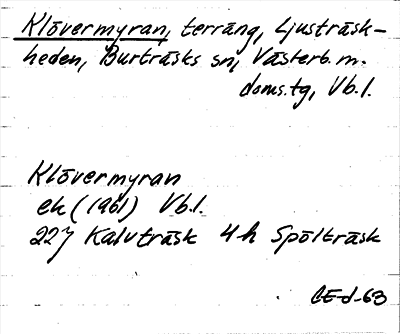 Klövermyran, terräng, Ljusträsk-
heden, Burträsks sn, Västerb. m.
doms.tg, Vb.l.
Klövermyran
ek (1961) Vb.l.
22J Kalvträsk 4h Spölträsk
CE-d-63